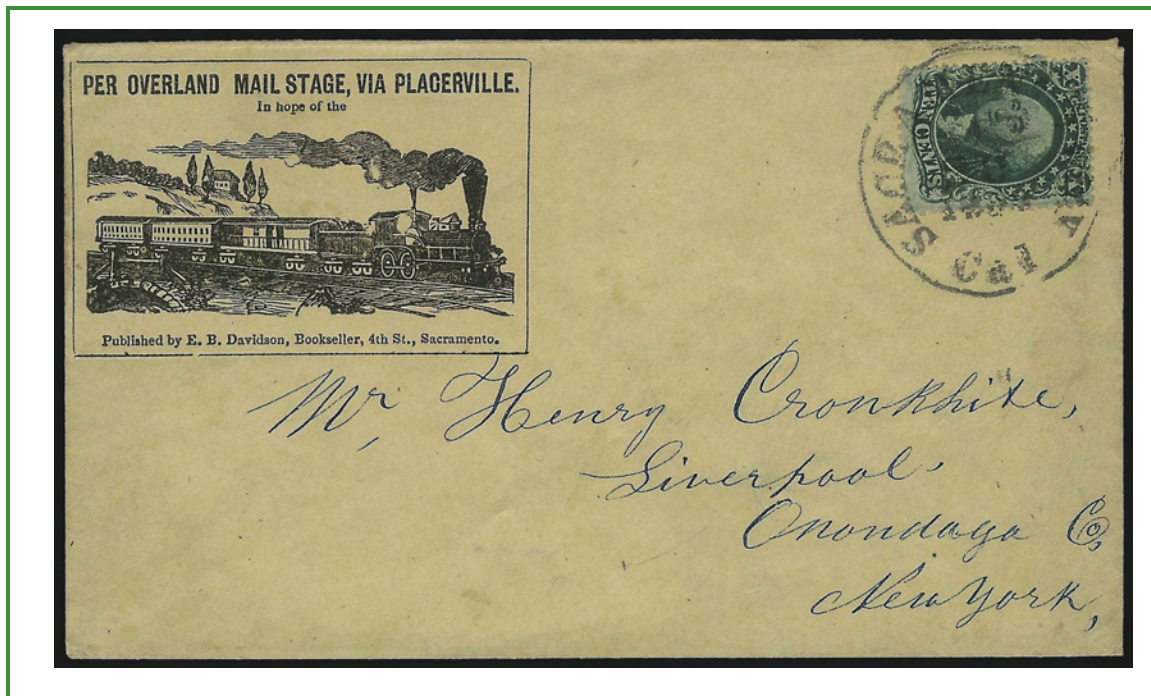 PER OVERLAND MAIL STAGE, VIA PLACERVILLE.
In hope of the
Published by E. B. Davidson, Bookseller, 4th St., Sacramento.
TEN CENTS
X X
Cal
Mr. Henry Cronkhite,
Liverpool.
Onondaga Co,
New York,